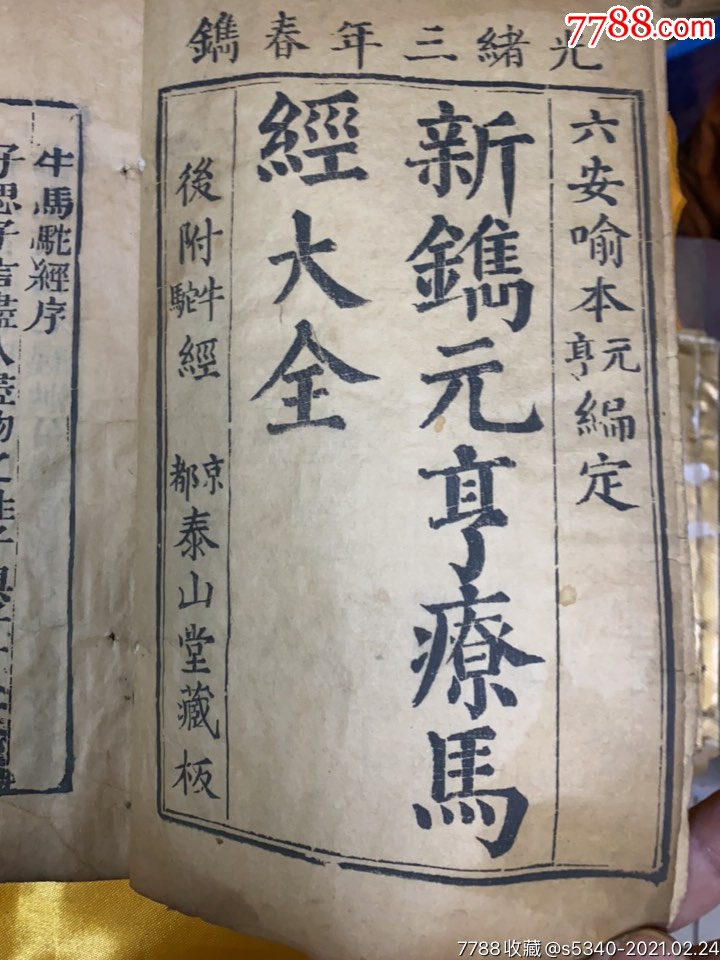 7788.com
光緒三年春鐫
六安喻本元亨編定
新鐫元亨療馬
經大全
後附牛駝經 京都泰山堂藏板
牛馬駝經序
7788收藏@s5340-2021.02.24